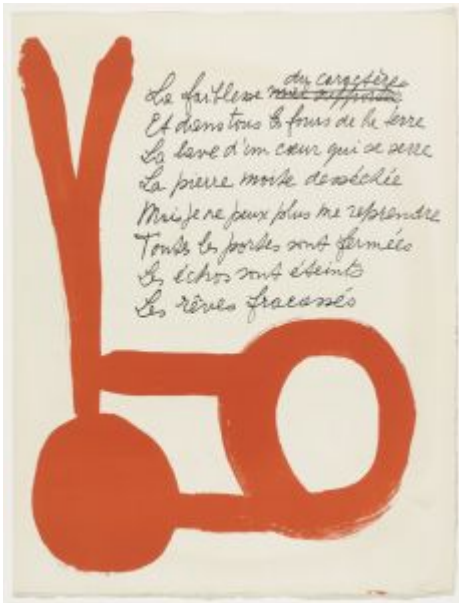 La faiblesse du caractère
Et dans tous les fours de la terre
La lave d'un cœur qui se serre
La pierre morte desséchée
Mais je ne peux plus me reprendre
Toutes les portes sont fermées
Les échos sont éteints
Les rêves fracassés